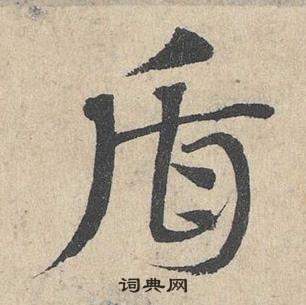 盾
词典网